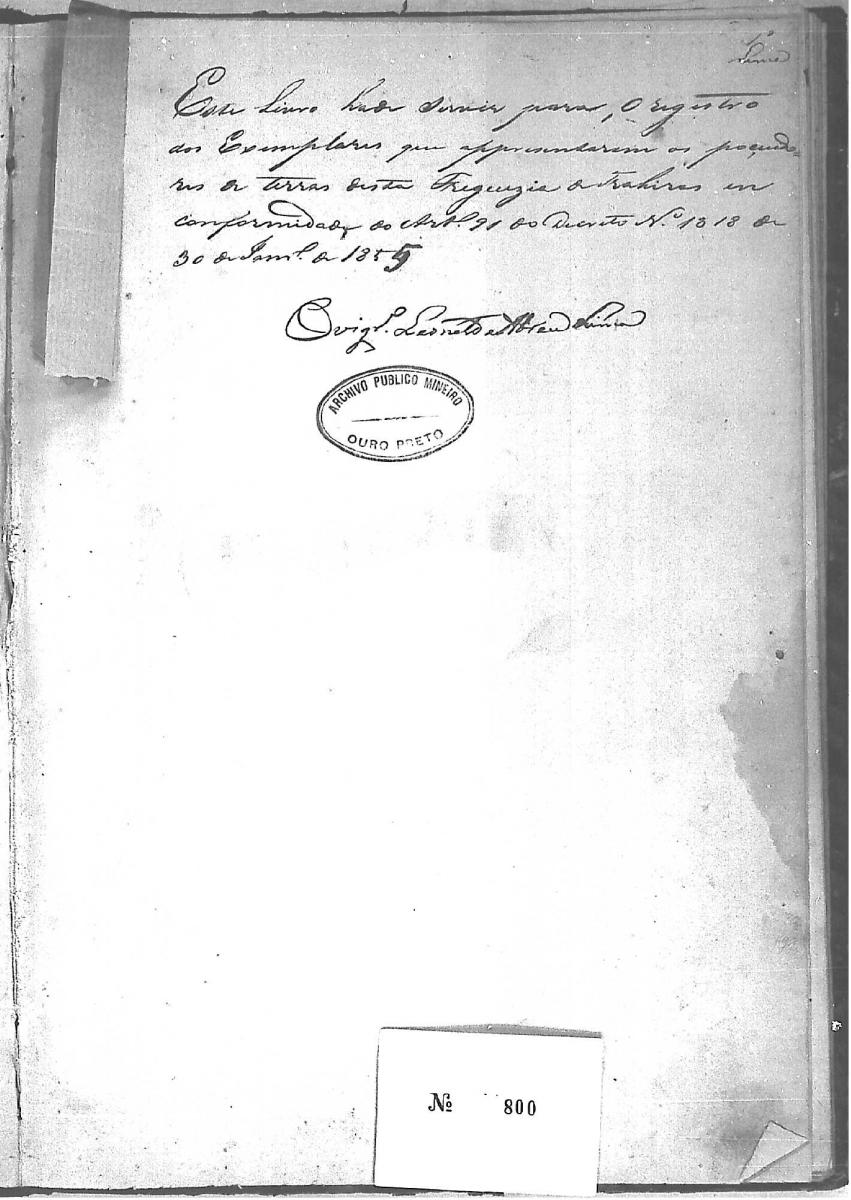 1º
Lima
Este Livro hade servir para, O registro
dos Exemplares que appresentarem os posuido-
res de terras desta Freguezia de Trahiras em
conformidade do Artº. 91 do Decreto N.º 1318 de
30 de Janrº. de 1855
O vigrº. Leonel de Abreu Lima
ARCHIVO PUBLICO MINEIRO
OURO PRETO
Nº 800